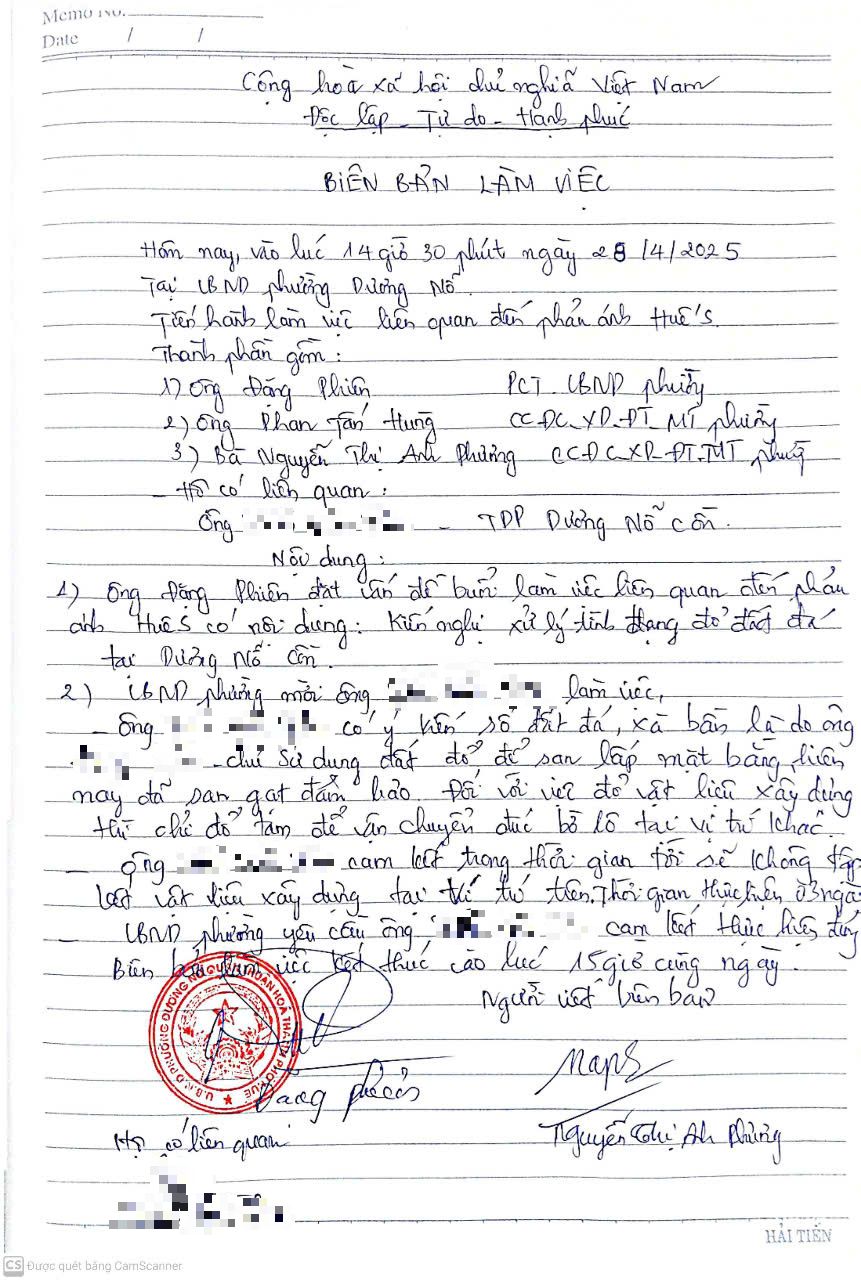 Memo No.
Date / /
Cộng hòa xã hội chủ nghĩa Việt Nam
Độc lập - Tự do - Hạnh phúc
BIÊN BẢN LÀM VIỆC
Hôm nay, vào lúc 14 giờ 30 phút ngày 28/4/2025
Tại UBND phường Dương Nỗ.
Tiến hành làm việc liên quan đến phản ánh Huế S.
Thành phần gồm:
1) Ông Đặng Phiên PCT UBND phường
2) Ông Phan Tấn Hưng CC ĐC-XD-ĐT-MT phường
3) Bà Nguyễn Thị Anh Phương CC ĐC-XD-ĐT-MT phường
- Hộ có liên quan:
Ông - TDP Dương Nỗ Cồn.
Nội dung:
1) Ông Đặng Phiên đặt vấn đề buổi làm việc liên quan đến phản
ánh Huế S có nội dung: Kiến nghị xử lý tình trạng đổ đất đá
tại Dương Nỗ Cồn.
2) UBND phường mời ông làm việc,
- Ông có ý kiến số đất đá, xà bần là do ông
chủ sử dụng đất đổ để san lấp mặt bằng, hiện
nay đã san gạt đảm bảo. Đối với việc đổ vật liệu xây dựng
thì chỉ đổ tạm để vận chuyển đúc bờ lô tại vị trí khác.
- Ông cam kết trong thời gian tới sẽ không tập
kết vật liệu xây dựng tại vị trí trên. Thời gian thực hiện ngày
- UBND phường yêu cầu ông cam kết thực hiện đúng
Biên bản làm việc kết thúc vào lúc 15 giờ cùng ngày.
Người viết biên bản
U.B.N.D PHƯỜNG DƯƠNG NỖ QUẬN THUẬN HOÁ THÀNH PHỐ HUẾ
Đặng Phiên
Hộ có liên quan
Nguyễn Thị Anh Phương
HẢI TIẾN
CS Được quét bằng CamScanner